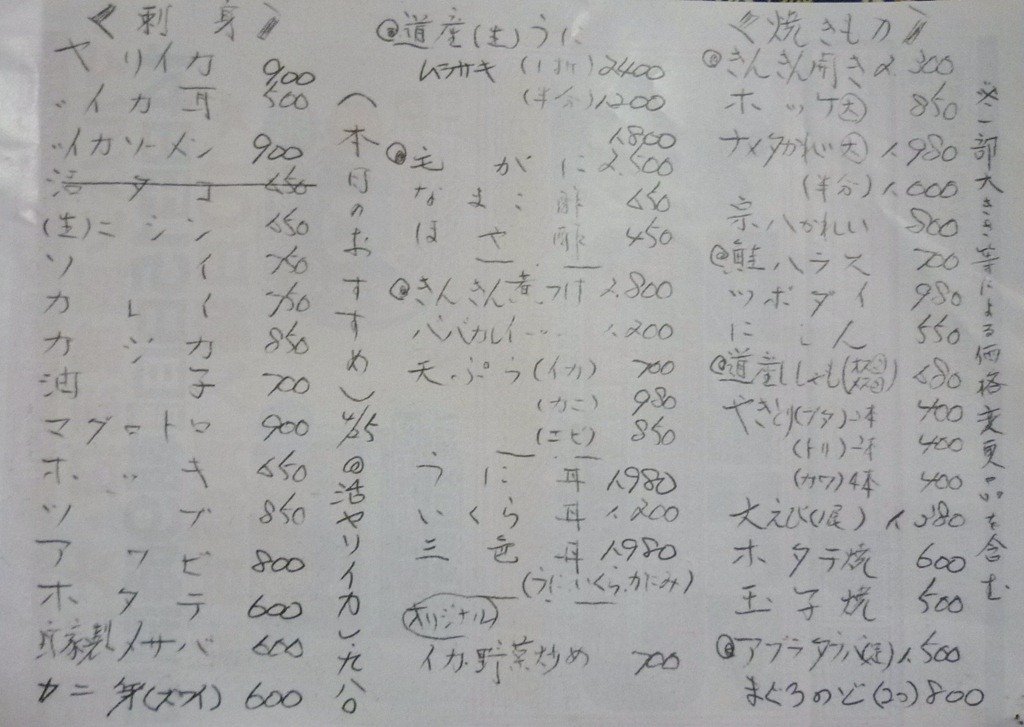 《刺身》
ヤリイカ 900
〃イカ耳 500
〃イカソーメン 900
活タコ 650
(生)ニシン 650
ソイ 750
カレイ 750
カジカ 850
油子 700
マグロトロ 900
ホッキ 650
ツブ 850
アワビ 800
ホタテ 600
自家製〆サバ 600
カニ(ズワイ) 600
(本日のおすすめ) 4/25 ◎活ヤリイカ 1.九八〇
◎道産(生)うに
ムラサキ (1折) 2400
(半分) 1.200
1.800
◎毛がに 2.500
なまこ酢 650
ほや酢 450
◎きんきん煮つけ 2.800
ババカレイ〃 1.200
天ぷら(イカ) 700
(カニ) 980
(エビ) 850
うに丼 1.980
いくら丼 1.200
三色丼 1.980
(うに.いくら.かにみ)
オリジナル
イカ野菜炒め 700
《焼きもの》
◎きんきん開き 2.300
ホッケ(大) 850
ナメタかれい(大) 1.980
(半分) 1.000
宗八かれい 800
◎鮭ハラス 700
ツボダイ 980
にしん 550
◎道産ししゃも(オス②メス②) 680
やきとり(ブタ)2本 400
(トリ)2本 400
(カワ)4本 400
大えび(1尾) 1.280
ホタテ焼 600
玉子焼 500
◎アブラタラバ 1.500
まぐろのど(2コ) 800
※一部大きさ等による価格変更品を含む